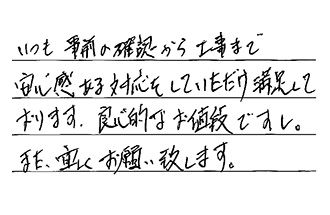 いつも事前の確認から工事まで
安心感ある対応をしていただけ満足して
おります。良心的なお値段ですし。
また、宜しくお願い致します。